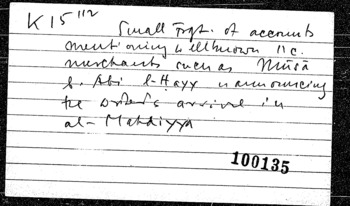 K 15 112
Small frgt. of accounts
mentioning wellknown 11c.
merchants such as Mūsā
b. Abi l-Ḥayy & announcing
the writer's arrival in
al-Mahdiyya
100135